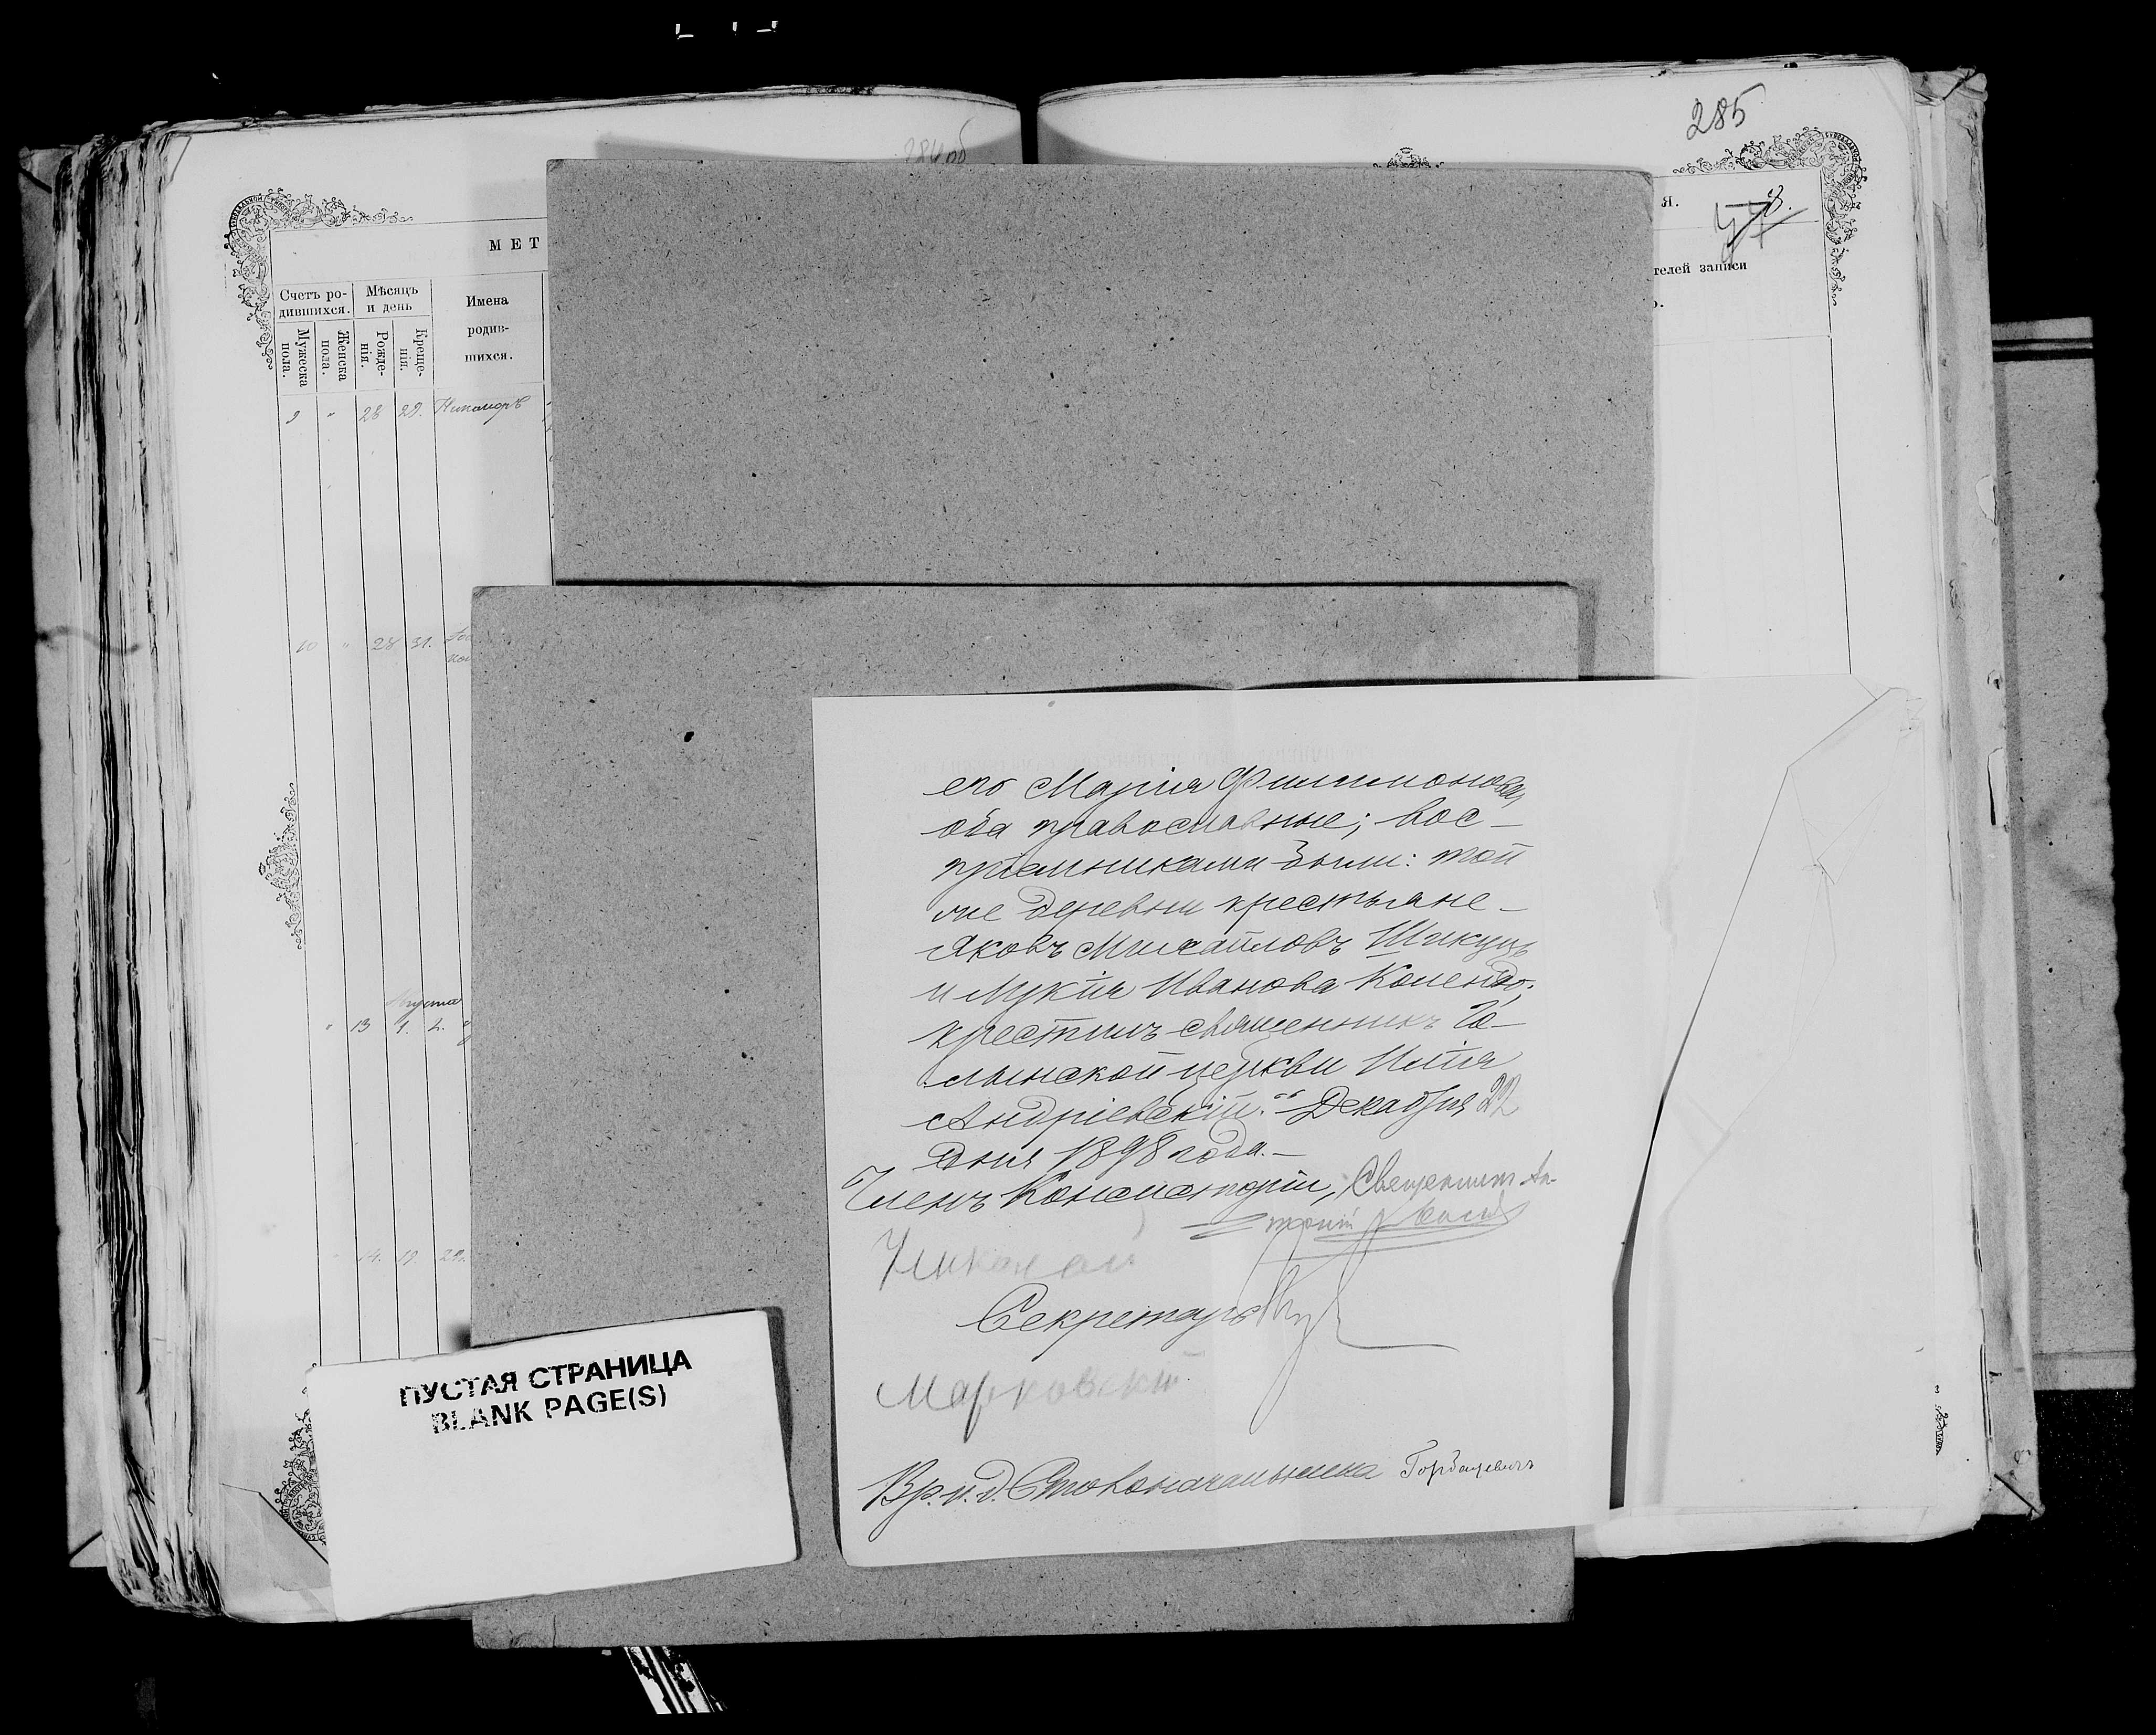 285
284 об
МЕТ
Я.
телей записи
Счетъ ро-
дившихся.
Мѣсяцъ
и день
Имена
родив-
шихся.
Мужеска
пола.
Женска
пола.
Рожде-
нія.
Креще-
нія.
9 " 28 29. Никаноръ
10 " 28 31.
Августа
" 13 1. 2.
14. 19 22.
его Марія Филимонова
оба православные; вос-
пріемниками были: той
же деревни крестьяне-
Яковъ Михайловъ Шикуць
и Лукія Иванова Колендо;
крестилъ священникъ Го-
лынской церкви Илія
Андріевскій." Декабря 22
дня 1898 года.-
Членъ Консисторіи, Священникъ Ан-
тоній
Николай
Секретарь
Марковскій
Вр. и. д. Столоначальника Горбацевичъ
ПУСТАЯ СТРАНИЦА
BLANK PAGE(S)